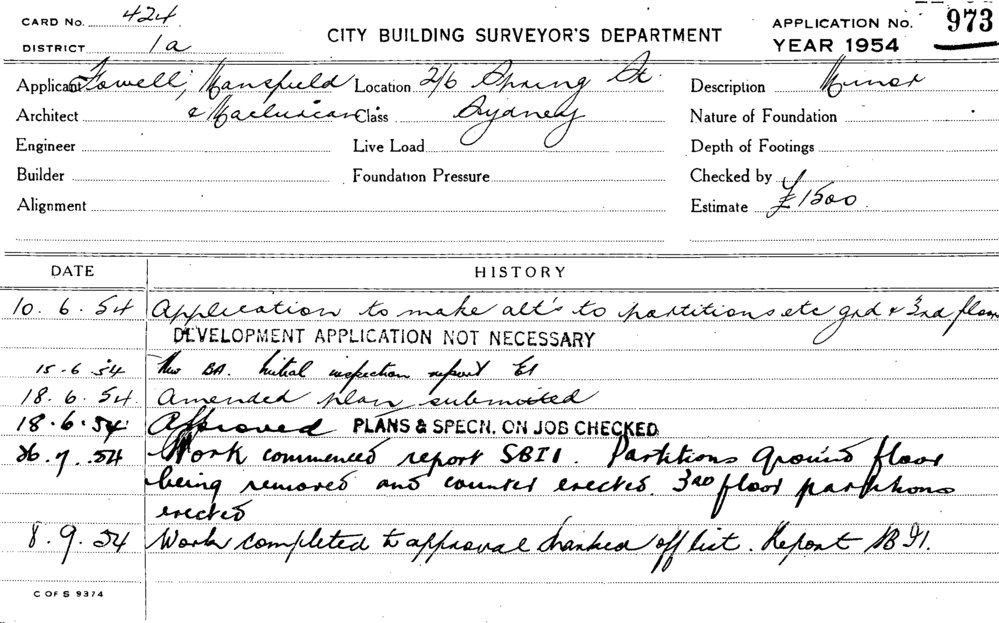 CARD No. 424
DISTRICT 1a
CITY BUILDING SURVEYOR'S DEPARTMENT
APPLICATION No. 973
YEAR 1954
Applicant Fowell, Mansfield Location 2/6 Spring St. Description Minor
Architect & Maclurcan Class Sydney Nature of Foundation
Engineer Live Load Depth of Footings
Builder Foundation Pressure Checked by
Alignment Estimate £1500
DATE HISTORY
10.6.54 Application to make alt's to partitions etc grd & 3rd floor
DEVELOPMENT APPLICATION NOT NECESSARY
15.6.54 BA. Initial inspection report
18.6.54 Amended plan submitted
18.6.54 Approved PLANS & SPECN. ON JOB CHECKED
26.7.54 Work commenced report SBI1. Partitions ground floor
being removed and counter erected. 3RD floor partitions
erected
8.9.54 Work completed to approval marked off list. Report
C OF S 9374